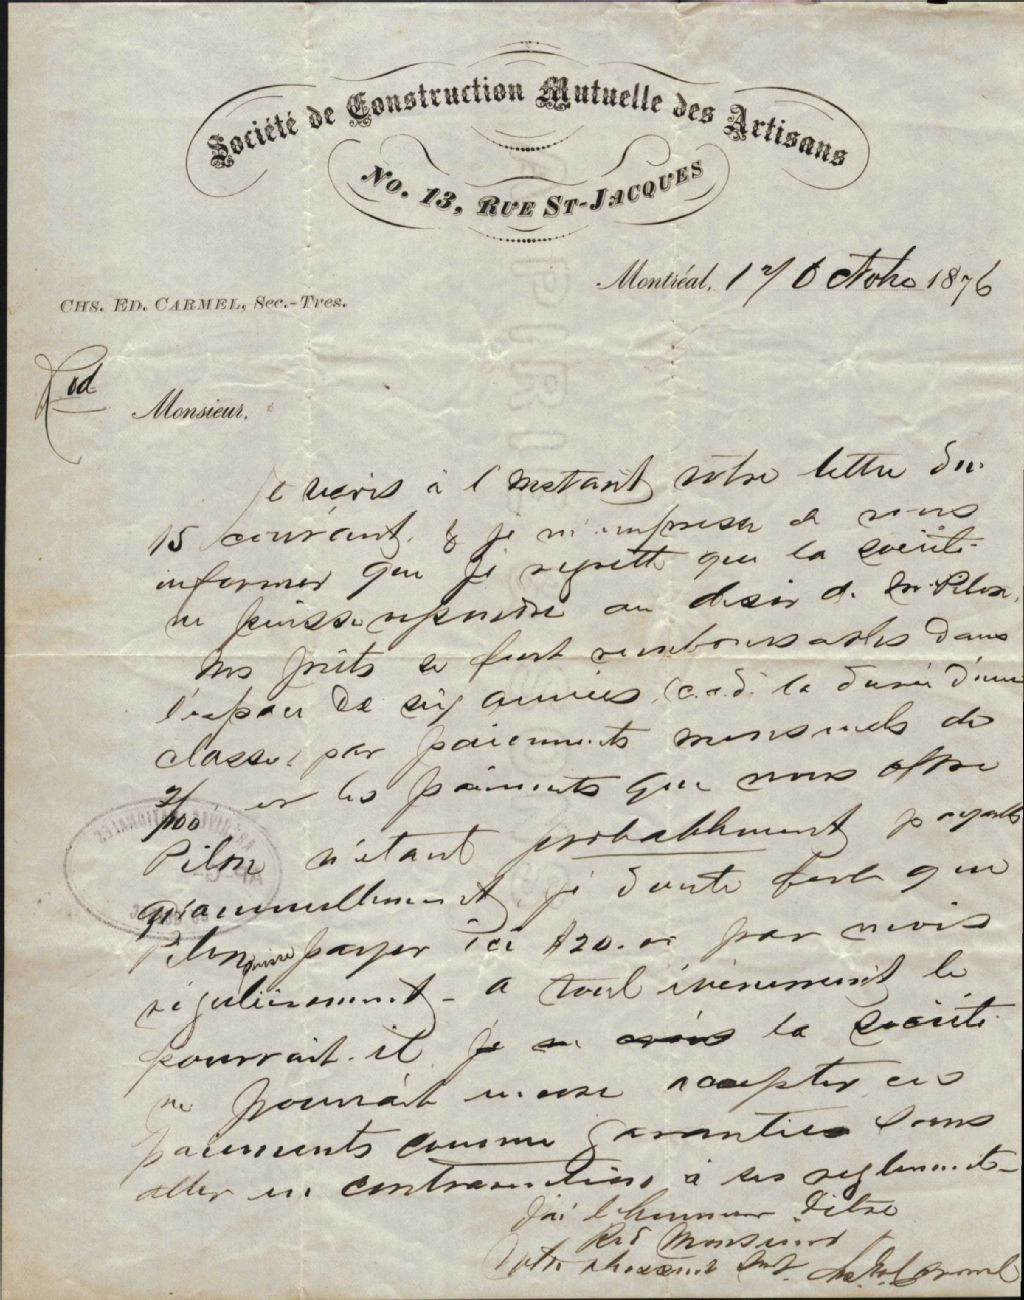 Société de Construction Mutuelle des Artisans
No. 13, RUE ST-JACQUES
Montréal, 17 Octobre 1876
CHS. ED. CARMEL, Sec.-Tres.
Rvd
Monsieur,
Je reçois à l'instant votre lettre du
15 courant & je m'empresse de vous
informer que je regrette que la société
ne puisse repondre au desir de Mr. Pilon,
Nos prêts se font remboursables dans
l'espace de six années, (c.a.d. la durée d'une
classe) par paiements mensuels de
les paiements que nous offre
Pilon n'étant probablement payables
qu'annuellement je doute fort que
Pilon puisse payer ici $20.00 par mois
régulièrement - a tout évènement le
pourrait-il, la société
ne pourrait encore accepter ces
paiements comme garanties sans
aller en contravention à ses reglements -
J'ai l'honneur d'être
Rvd Monsieur
Votre obeissant Svt. Chs Ed Carmel